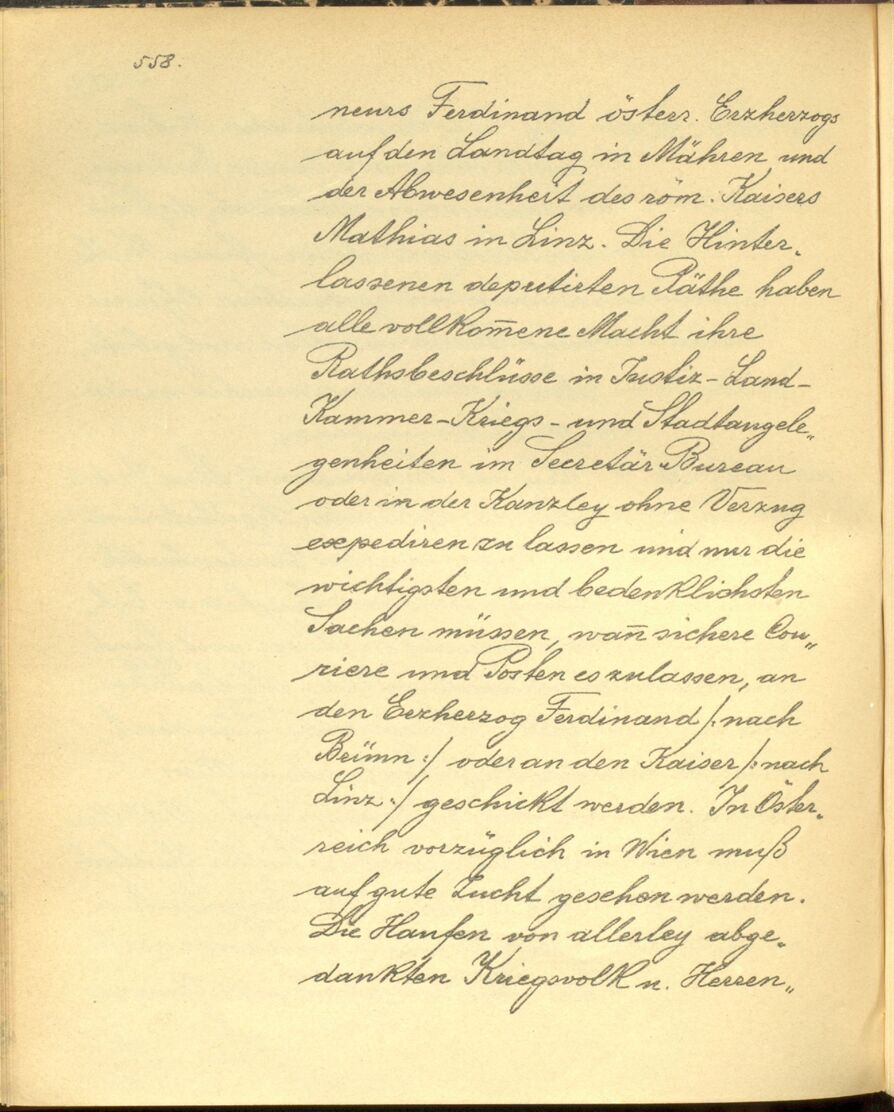 558.
neurs Ferdinand österr. Erzherzogs
auf den Landtag in Mähren und
der Abwesenheit des röm. Kaisers
Mathias in Linz. Die Hinter„
lassenen deputirten Räthe haben
alle vollkom̅ene Macht ihre
Rathsbeschlüsse in Justiz- Land-
Kammer-Kriegs- und Stadtangele„
genheiten im Secretär-Bureau
oder in der Kanzley ohne Verzug
expediren zu lassen und nur die
wichtigsten und bedenklichsten
Sachen müssen, wan̅ sichere Cou„
riere und Posten es zulassen, an
den Erzherzog Ferdinand /: nach
Brünn :/ oder an den Kaiser /: nach
Linz :/ geschickt werden. In Öster„
reich vorzüglich in Wien muß
auf gute Zucht gesehen werden.
Die Haufen von allerley abge„
dankten Kriegsvolk u. Herren„